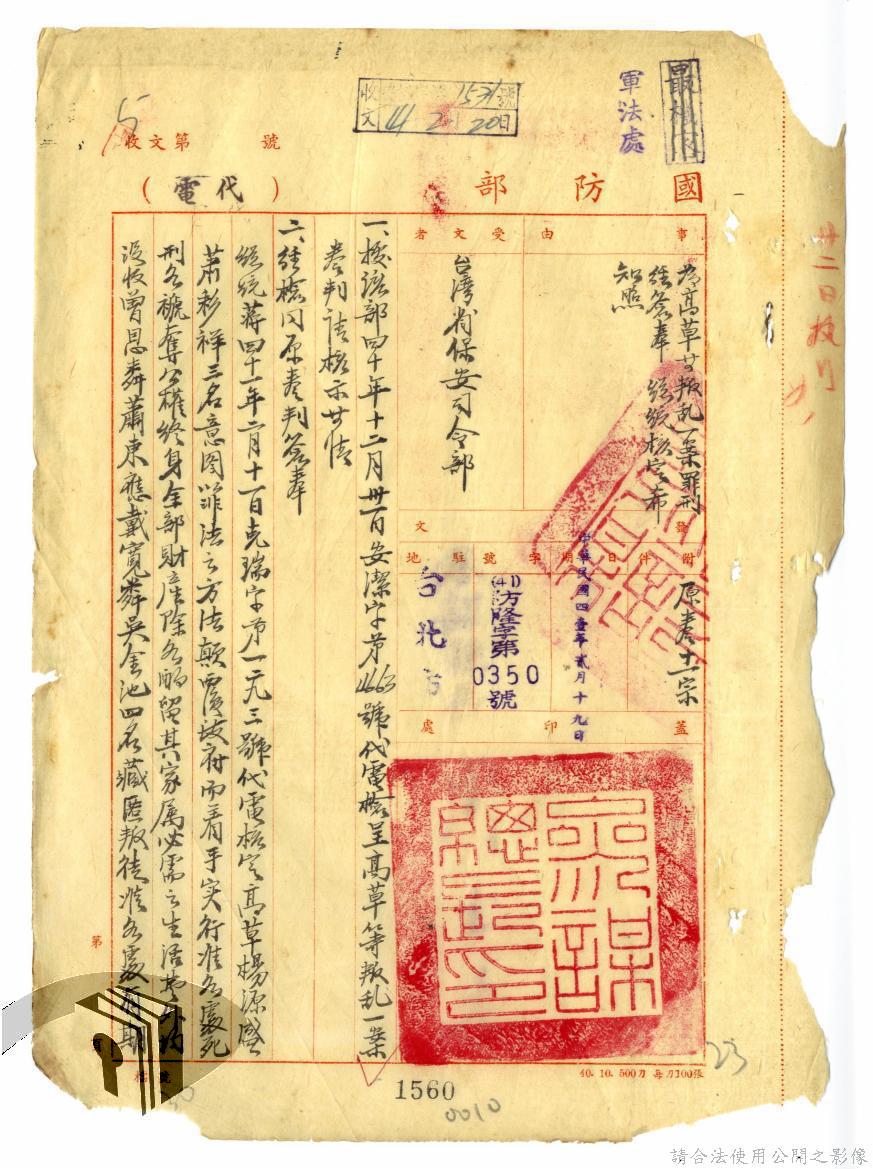 最機密
軍法處
收文 1531號
41 2 20日
5
收文第 號
國防部
(代電)
事由
為高草等叛乱一案罪刑
经签奉 總統核定希
知照
受文者
台湾省保安司令部
附件
原卷十一宗
發文
日期
中華民國四壹年貳月十九日
字號
(41)防隆字第
0350
號
駐地
台北
蓋印處
參謀總長印
一、據該部四十年十二月卅一日安潔字第4663號代電檢呈高草等叛乱一案
卷判請核示等情
二、经檢同原卷判签奉
總統蔣四十一年二月十一日克瑞字第一元三號代電核定高草楊源盛
蕭彩祥三名意图以非法之方法顛覆政府而着手实行准各處死
刑各褫奪公權終身全部財產除各酌留其家属必需之生活費外均
沒收曾恩舞蕭東應戴寬舞吳金池四名藏匿叛徒准各處有期
廿二日
第
號
40. 10. 500刀 每刀100張
23
1560
0010
請合法使用公開之影像